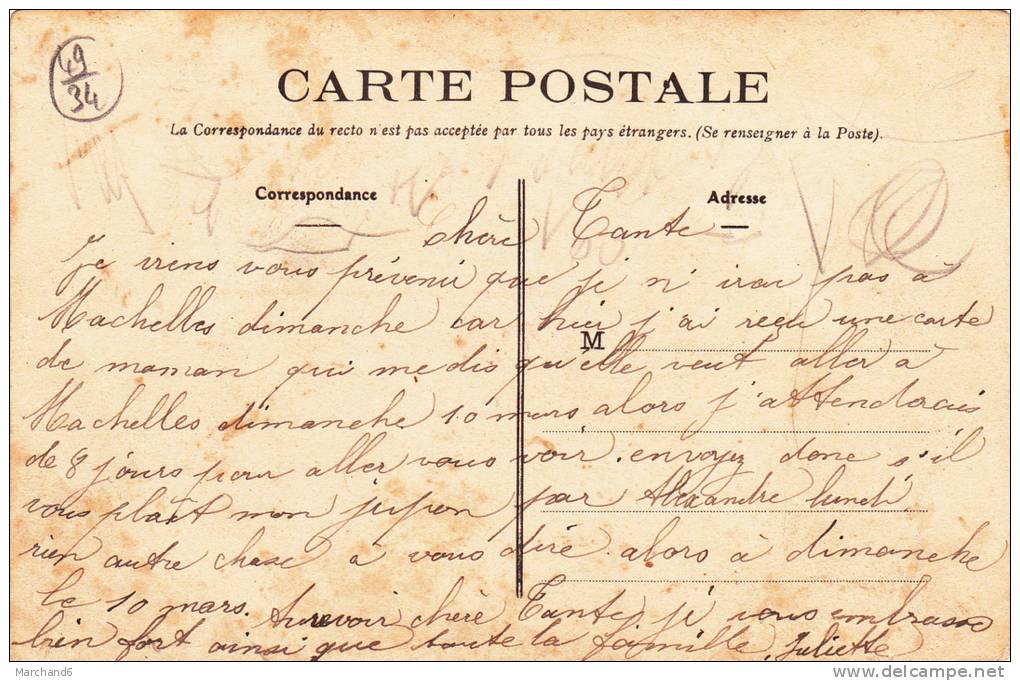 49
34
CARTE POSTALE
La Correspondance du recto n'est pas acceptée par tous les pays étrangers. (Se renseigner à la Poste).
Correspondance
Adresse
Chère Tante
Je viens vous prévenir que je n'irai pas à
Machelles dimanche car hier j'ai reçu une carte
M
de maman qui me dis qu'elle veut aller à
Machelles dimanche 10 mars alors j'attenderais
de 8 jours pour aller vous voir. envoyez donc s'il
vous plaît mon jupon par Alexandre lundi
rien autre chose a vous dire. alors à dimanche
le 10 mars. Aurevoir chère Tante. je vous embrasse
bien fort ainsi que toute la famille, Juliette
Marchand6
www.delcampe.net